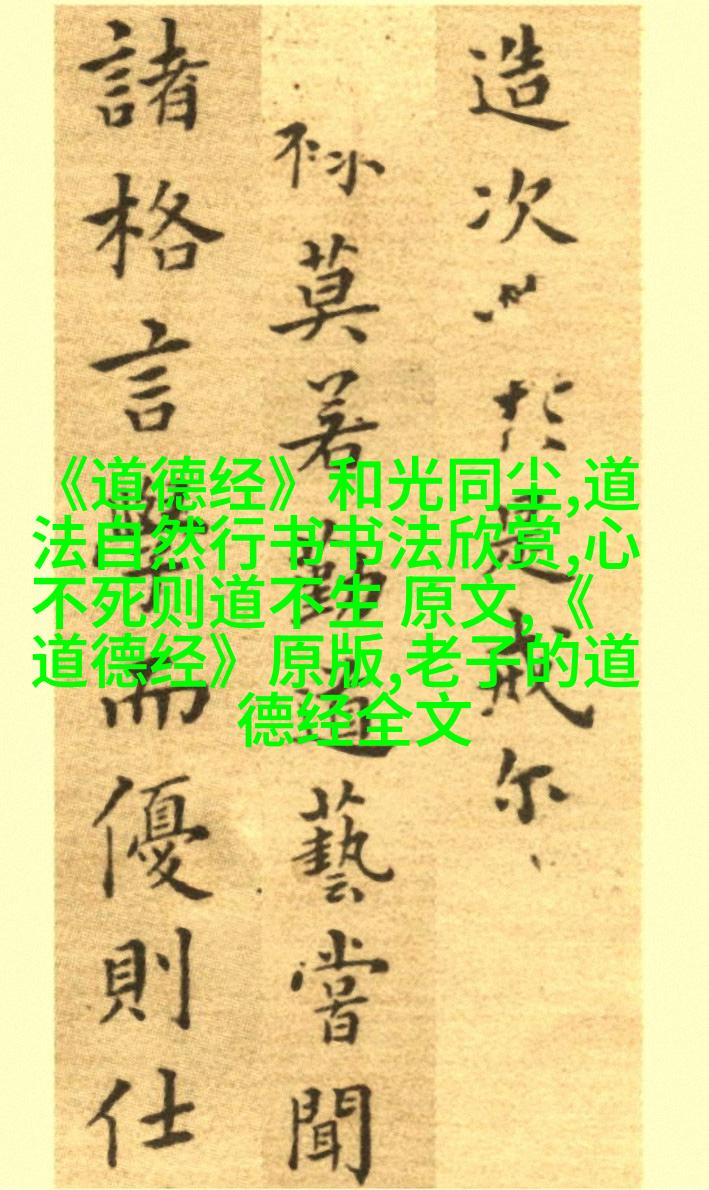 造次於是戒尔
莫若道藝嘗聞
諸格言學而優則仕
《道德经》和光同尘,道
法自然行书书法欣赏,心
不死则道不生 原文,《
道德经》原版,老子的道
德经全文